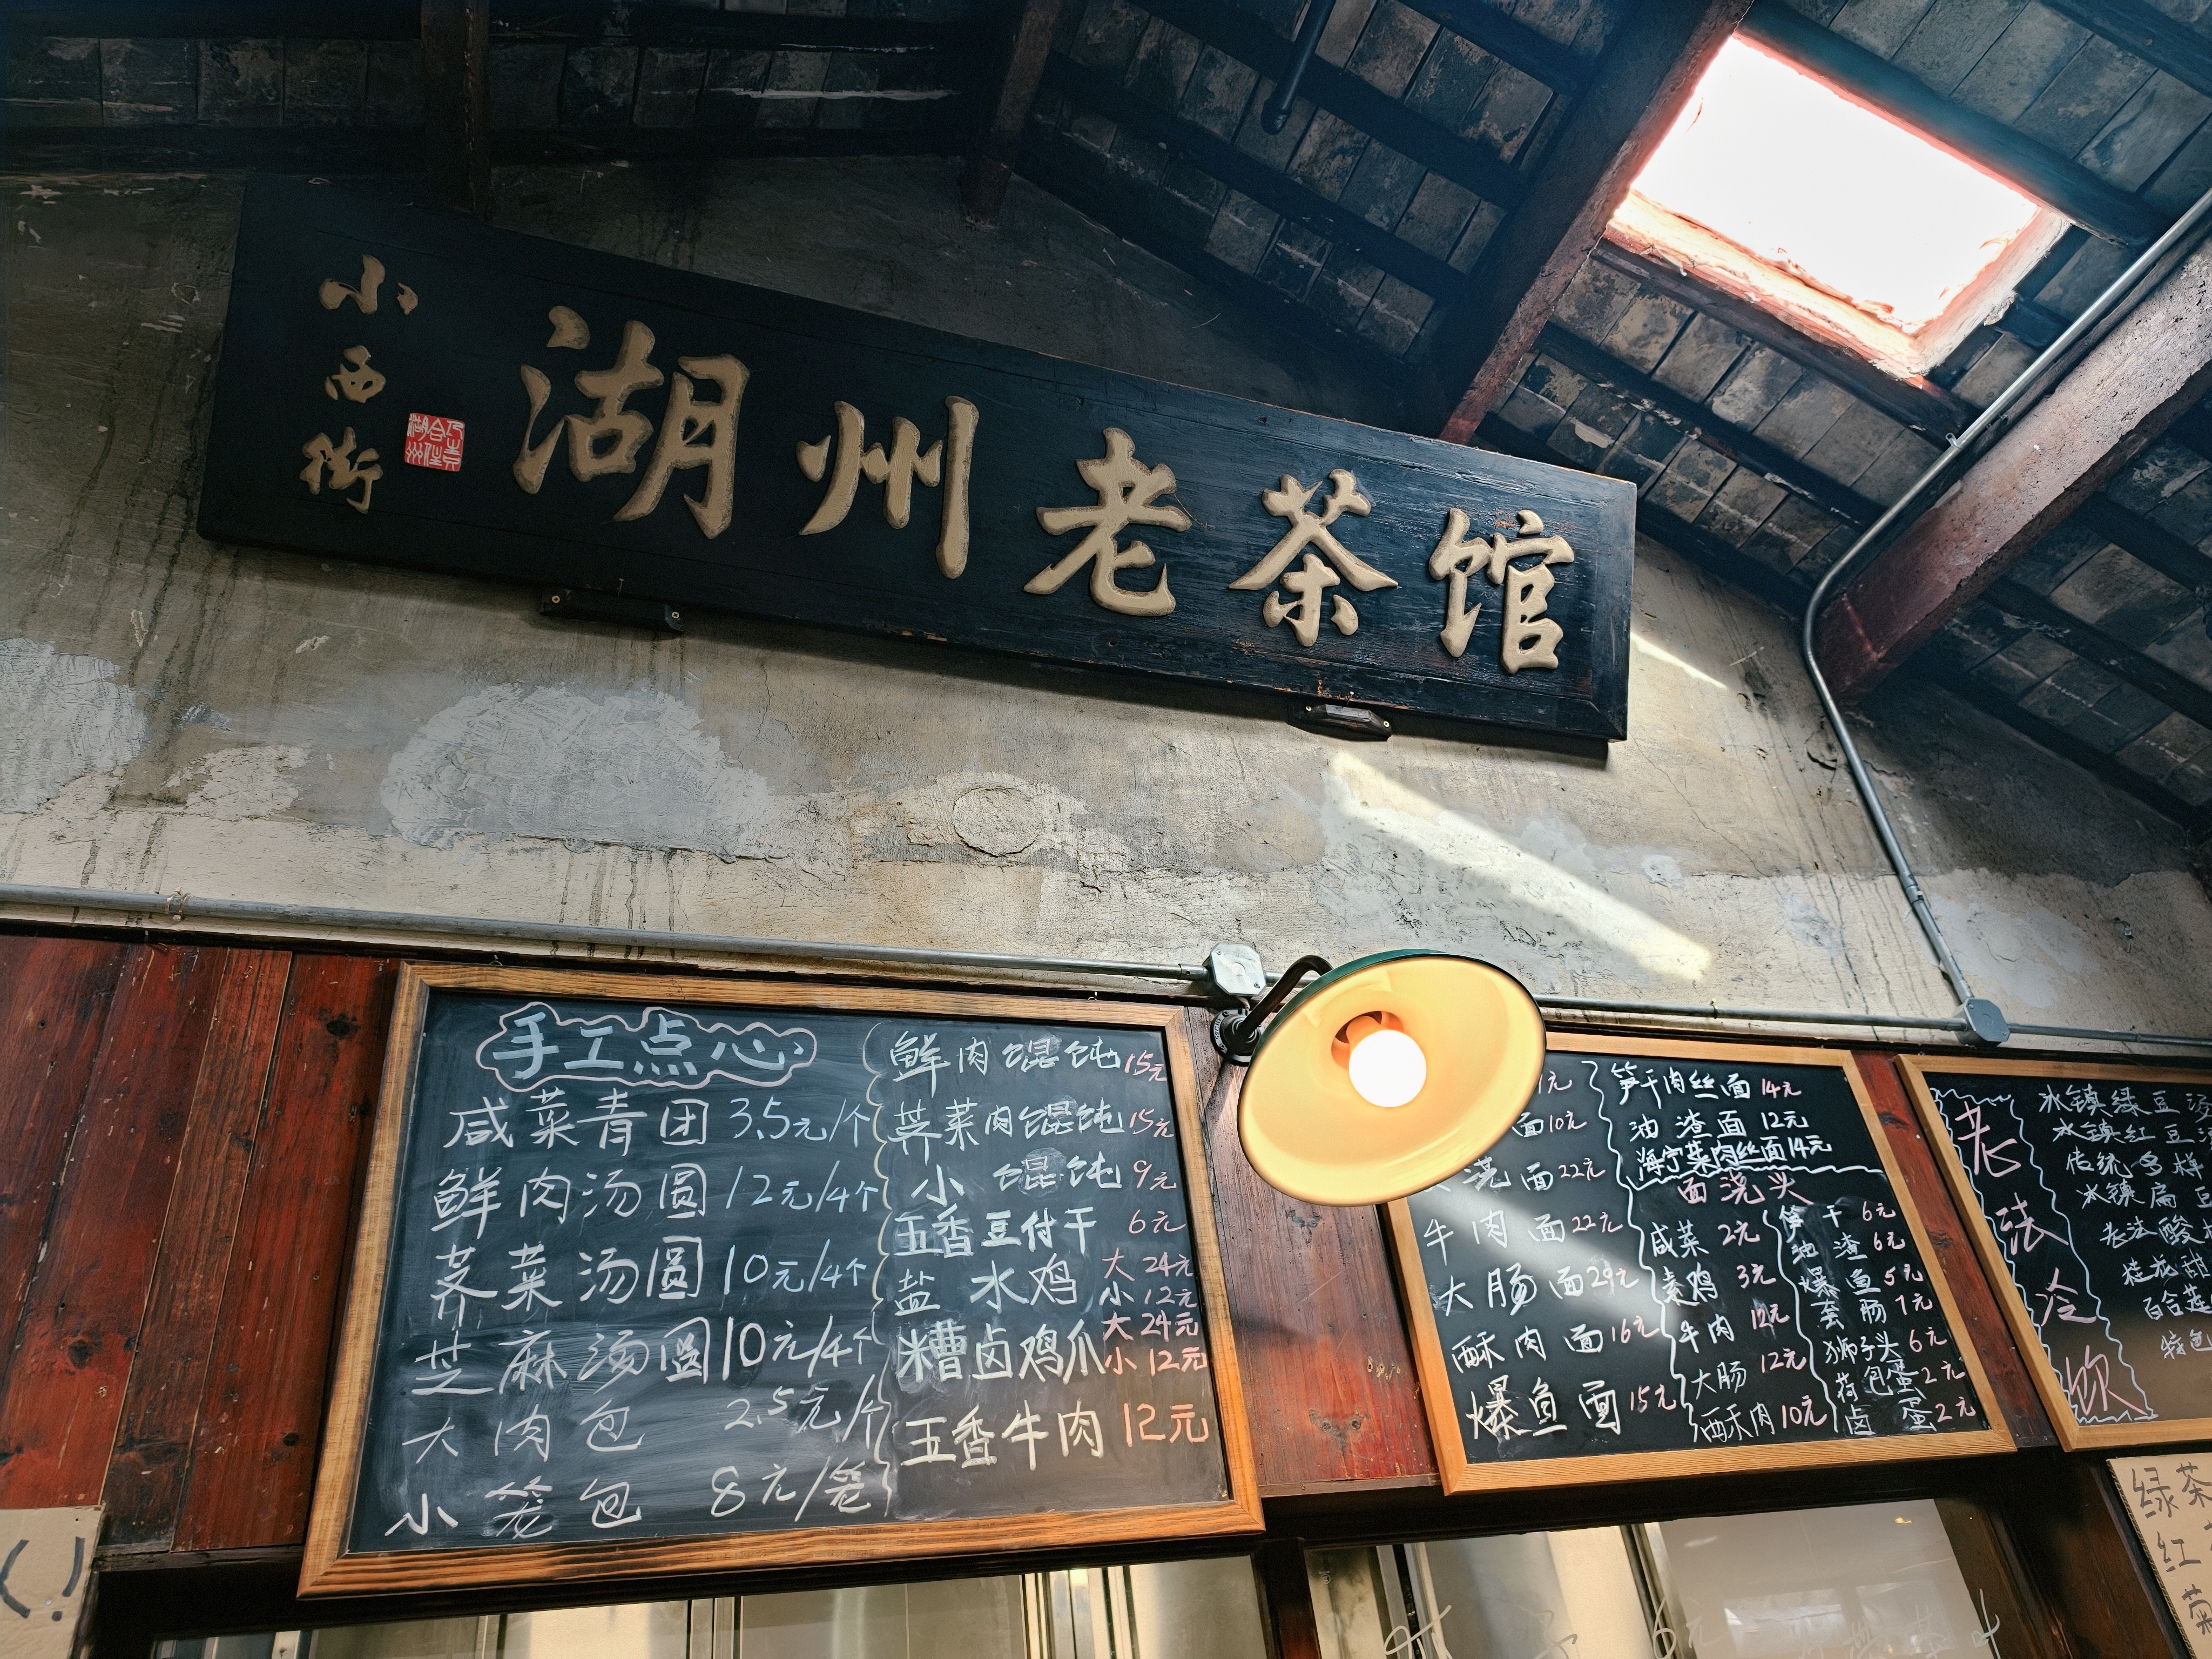 小西街
湖州老茶馆
手工点心
咸菜青团 3.5元/个
鲜肉汤圆 12元/4个
荠菜汤圆 10元/4个
芝麻汤圆 10元/4个
大肉包 2.5元/个
小笼包 8元/笼
鲜肉馄饨 15元
荠菜肉馄饨 15元
小馄饨 9元
五香豆付干 6元
盐水鸡 大 24元
小 12元
糟卤鸡爪 大 24元
小 12元
五香牛肉 12元
面 10元
浇面 22元
牛肉面 22元
大肠面 29元
酥肉面 16元
爆鱼面 15元
笋干肉丝面 14元
油渣面 12元
海宁菜肉丝面 14元
面浇头
咸菜 2元
素鸡 3元
牛肉 12元
大肠 12元
酥肉 10元
笋干 6元
油渣 6元
爆鱼 5元
狮子头 6元
荷包蛋 2元
卤蛋 2元
老法冷饮
冰镇绿豆汤
冰镇红豆
传统
冰镇扁
老法酸
桂花甜
百合莲
特色
绿茶
红
菊